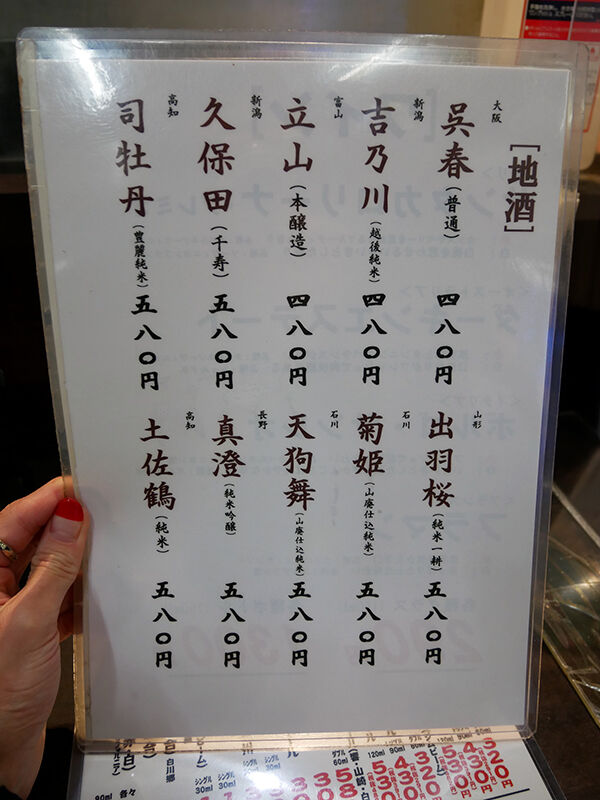 [地酒]
大阪
呉春(普通) 四八〇円
新潟
吉乃川(越後純米) 四八〇円
富山
立山(本醸造) 四八〇円
新潟
久保田(千寿) 五八〇円
高知
司牡丹(豊麗純米) 五八〇円
山形
出羽桜(純米一耕) 五八〇円
石川
菊姫(山廃仕込純米) 五八〇円
石川
天狗舞(山廃仕込純米) 五八〇円
長野
真澄(純米吟醸) 五八〇円
高知
土佐鶴(純米) 五八〇円
320円
430円
530円